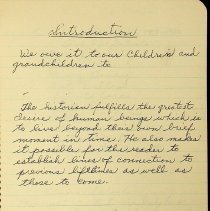 Introduction
We owe it to our Children and
grandchildren to
The historian fulfills the greatest
desire of human beings which is
to live beyond their own brief
moment in time. He also makes
it possible for the reader to
establish lines of connection to
previous lifetimes as well as
those to come.